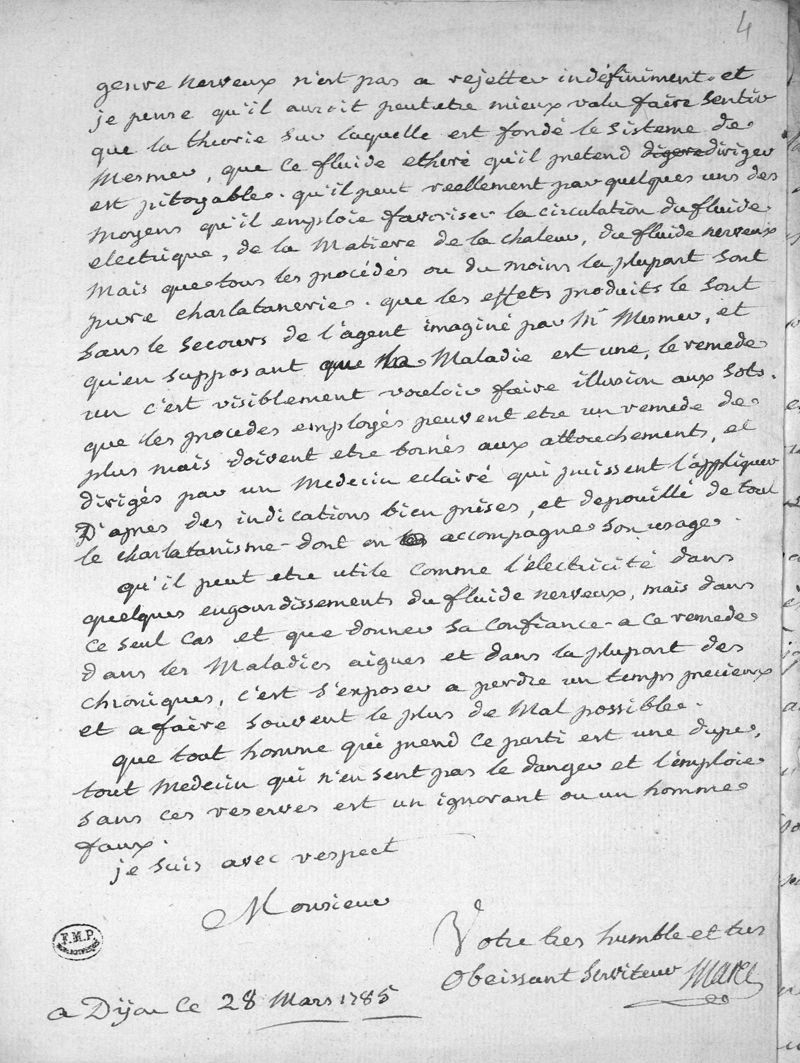 4
genre nerveux n'est pas a rejetter indéfiniment. et
je pense qu'il auroit peutetre mieux valu faire sentir
que la theorie sur laquelle est fondé le sisteme de
Mesmer, que ce fluide etheré qu'il pretend digere diriger
est pitoyable. qu'il peut reellement par quelques uns des
moyens qu'il emploie favoriser la circulation du fluide
electrique, de la Matiere de la chaleur, du fluide nerveux
Mais que tous les procédés ou du moins la plupart sont
pure charlatanerie. que les effets produits le sont
sans le secours de l'agent imaginé par Mr Mesmer, et
qu'en supposant que la Maladie est une, le remede
un c'est visiblement vouloir faire illusion aux sots.
que les procedes employés peuvent etre un remede de
plus mais doivent etre bornés aux attouchements, et
dirigés par un Medecin eclairé qui puissent l'appliquer
D'apres des indications bien prises, et depouillé de tout
le charlatanisme dont on accompagne son usage.
qu'il peut etre utile comme l'électricité dans
quelques engourdissements du fluide nerveux, mais dans
ce seul cas et que donner sa confiance a ce remede
dans les Maladies aigues et dans la plupart des
chroniques, c'est s'exposer a perdre un temps precieux
et a faire souvent le plus de Mal possible.
que tout homme qui prend ce parti est une dupe,
tout Medecin qui n'en sent pas le danger et l'emploie
sans ces reserves est un ignorant ou un homme
faux.
je suis avec respect
Monsieur
Votre tres humble et tres
Obeissant Serviteur Maret
F.M.P.
a Dijon ce 28 Mars 1785